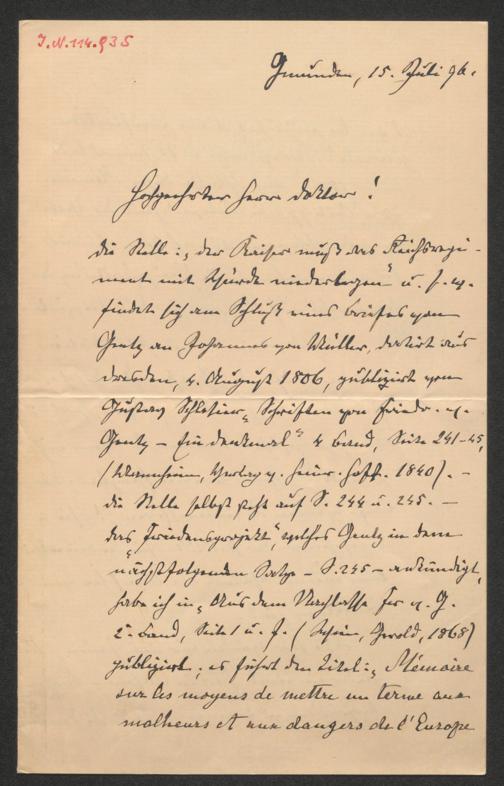 J.N. 114.935
Gmunden, 15. Juli 96.
Hochgeehrter Herr Doktor!
die Stelle: „der Kaiser muß das Reichsregi-
ment mit Würde niederlegen" u. s. w.
findet sich am Schluß eines Briefes von
Gentz an Johannes von Müller, datirt aus
Dresden, 4. August 1806, publizirt von
Gustav Schlesier „Schriften von Friedr. v.
Gentz – Ein Denkmal" 4 Band, Seite 241–45,
(Mannheim, Verlag v. Heinr. Hoff. 1840). –
die Stelle selbst steht auf S. 244 u. 245. –
das „Friedensprojekt", welches Gentz in dem
nächstfolgenden Satze – S. 245 – ankündigt,
habe ich in „Aus dem Nachlasse Fr. v. G.
2. Band, Seite 1 u. f. (Wien, Gerold, 1868)
publizirt; es führt den Titel: „Mémoire
sur les moyens de mettre un terme aux
malheurs et aux dangers de l'Europe